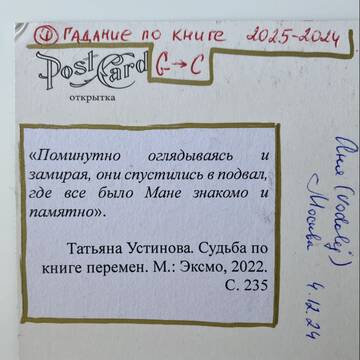 ① ГАДАНИЕ ПО КНИГЕ 2025-2024
Post Card G→C
открытка
«Поминутно оглядываясь и
замирая, они спустились в подвал,
где все было Мане знакомо и
памятно».
Татьяна Устинова. Судьба по
книге перемен. М.: Эксмо, 2022.
С. 235
Аня (Vodalej)
Москва 4.12.24